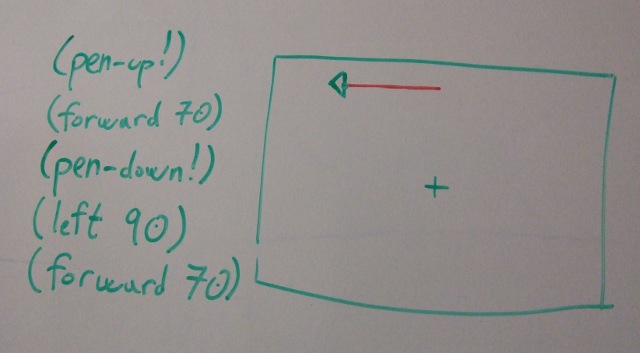 (pen-up!)
(forward 70)
(pen-down!)
(left 90)
(forward 70)